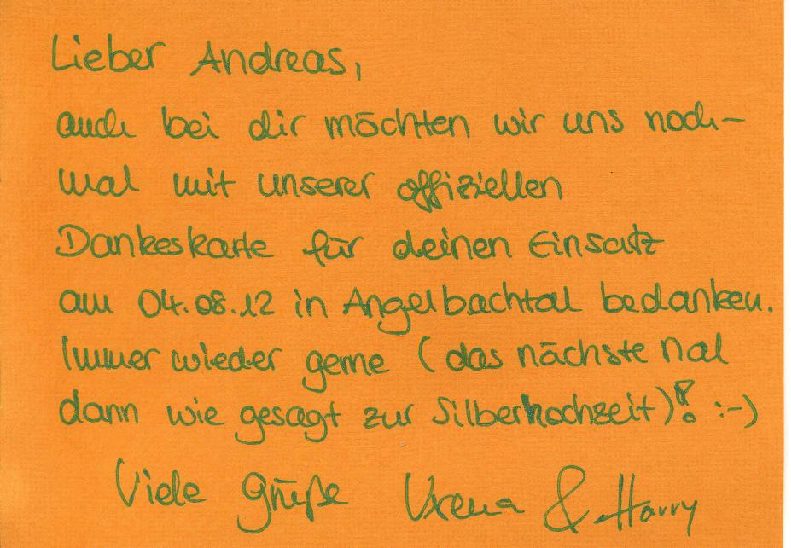 Lieber Andreas,
auch bei dir möchten wir uns noch-
mal mit unserer offiziellen
Dankeskarte für deinen Einsatz
am 04.08.12 in Angelbachtal bedanken.
Immer wieder gerne (das nächste Mal
dann wie gesagt zur Silberhochzeit)! :-)
Viele Grüße Verena & Harry